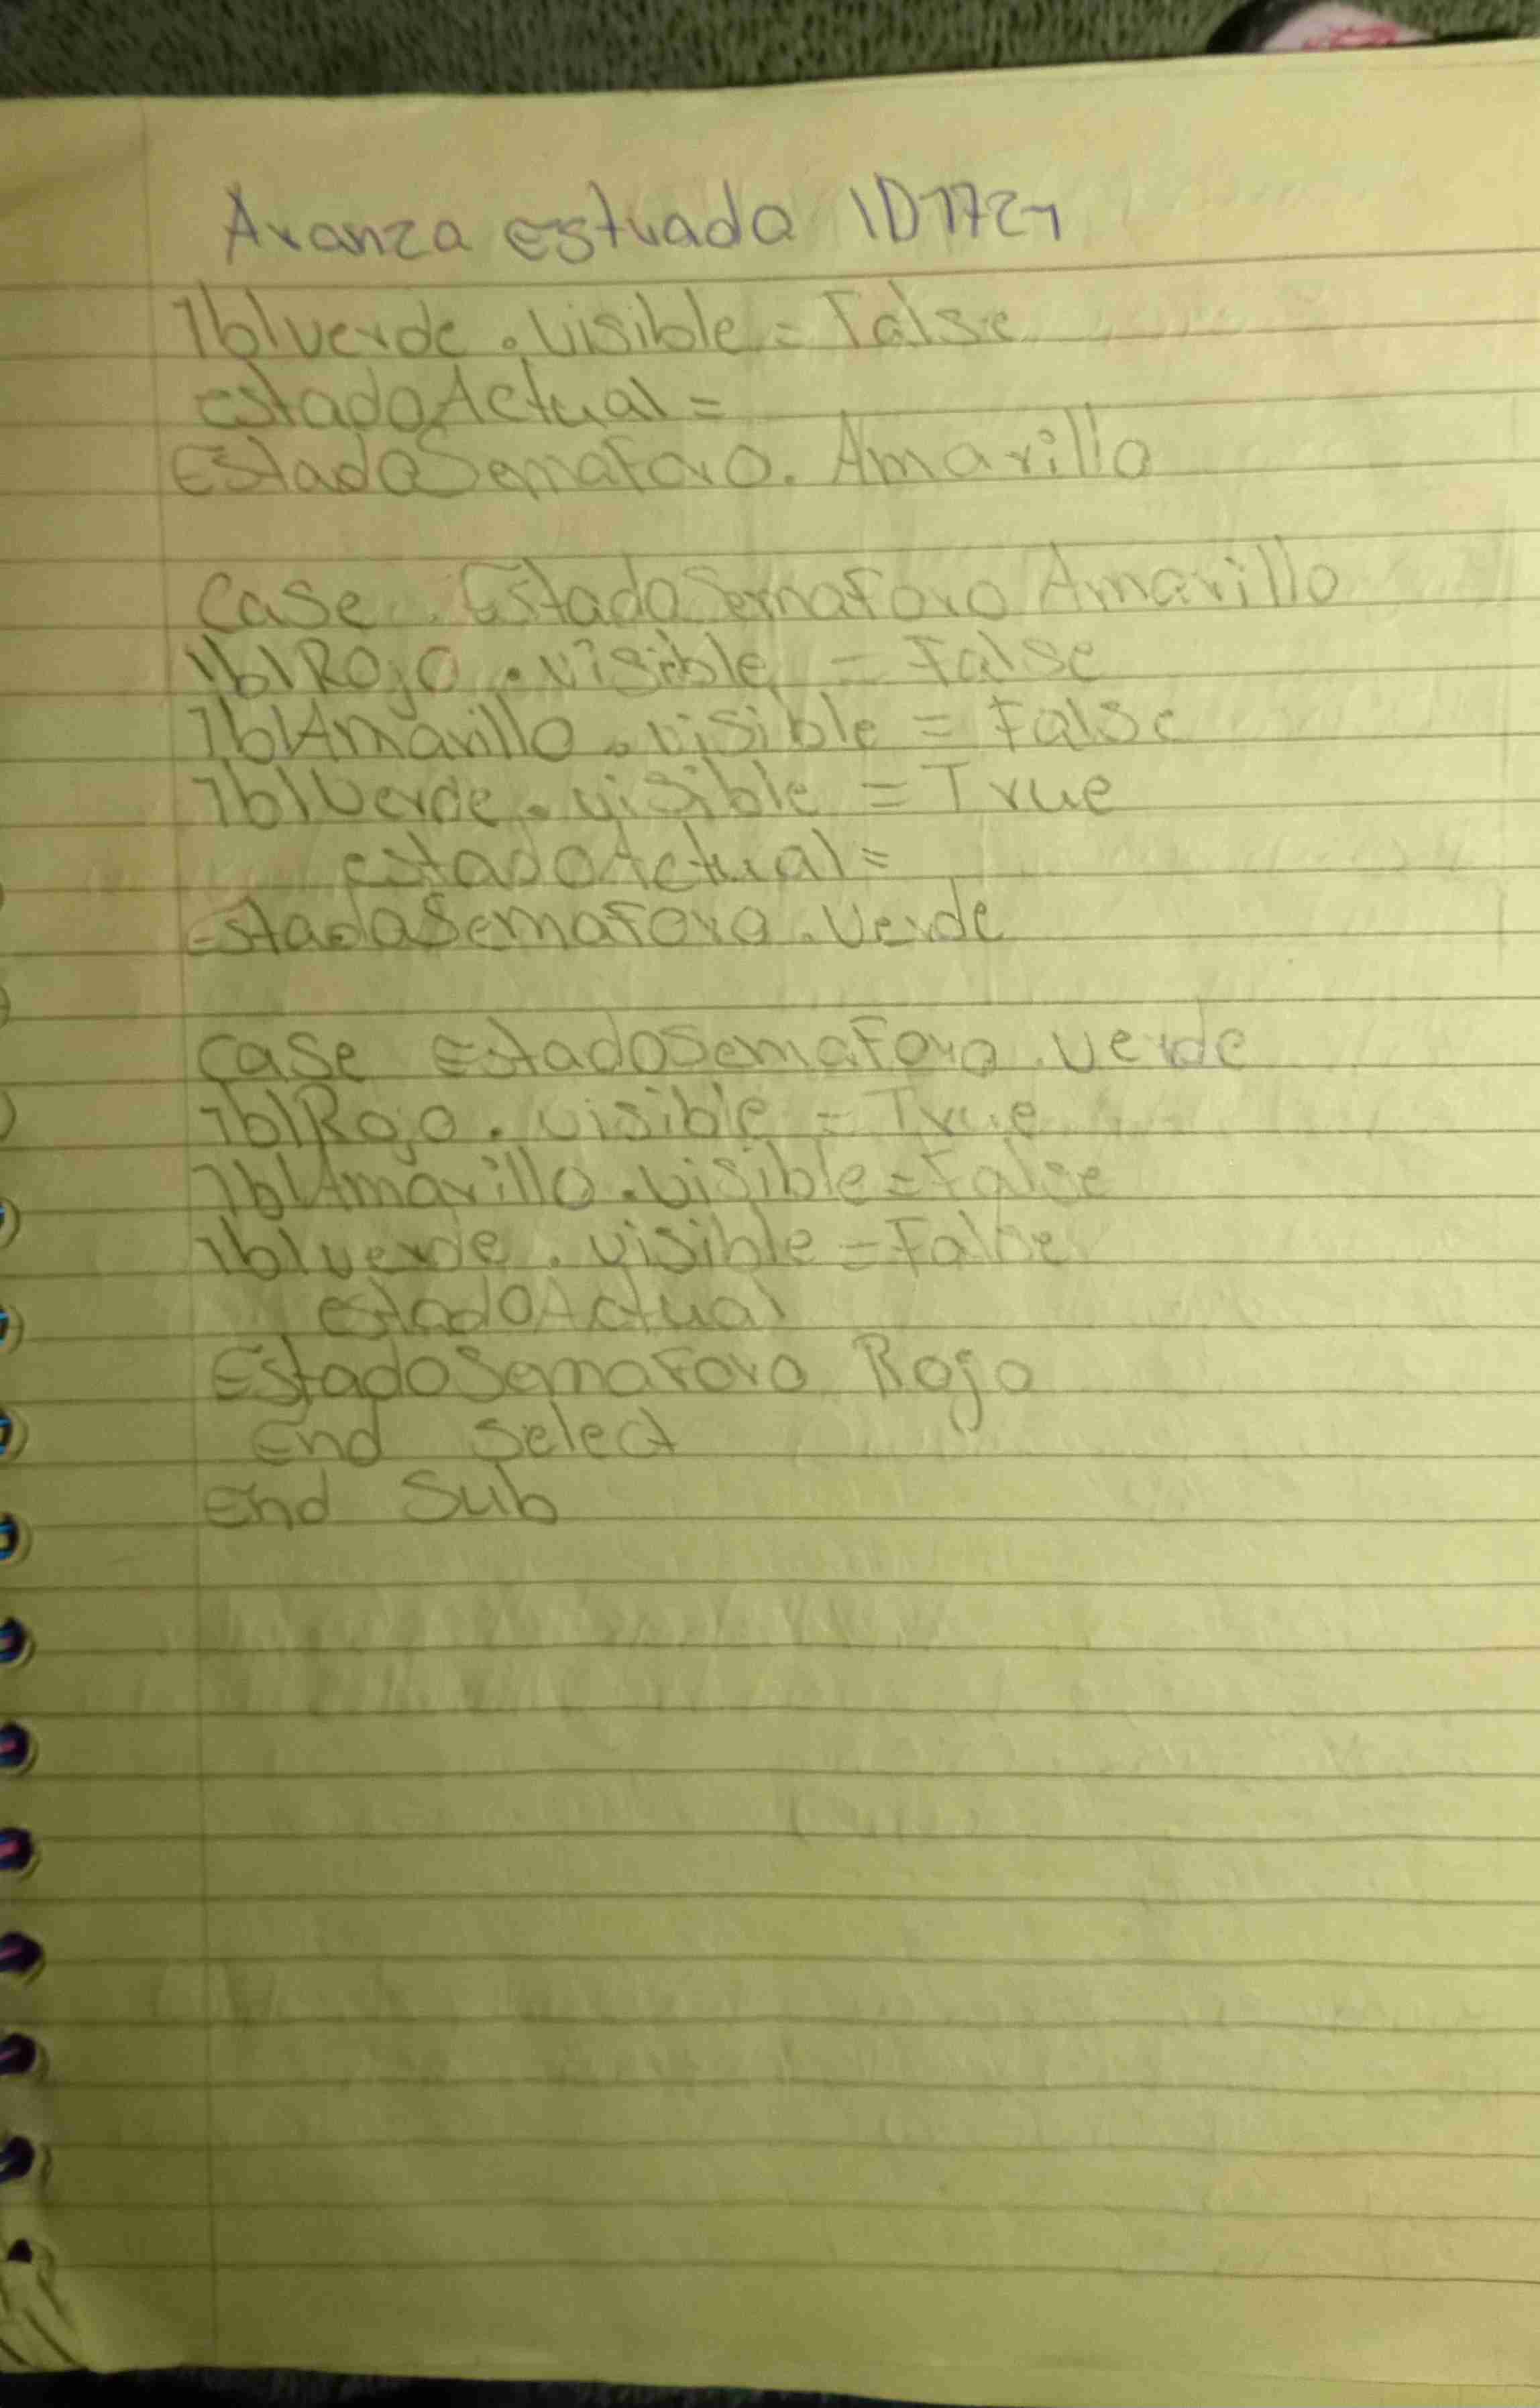 Avanza estuada ID1721
lblverde.visible = False
estadoActual =
EstadoSemaforo. Amarillo
Case. EstadoSemaforo Amarillo
lblRojo.visible = False
lblAmarillo.visible = False
lblVerde.visible = True
estadoActual =
EstadoSemaforo.Verde
case EstadoSemaforo.verde
lblRojo.visible = True
lblAmarillo.visible = False
lblverde.visible = False
estadoActual
EstadoSemaforo Rojo
End select
End Sub